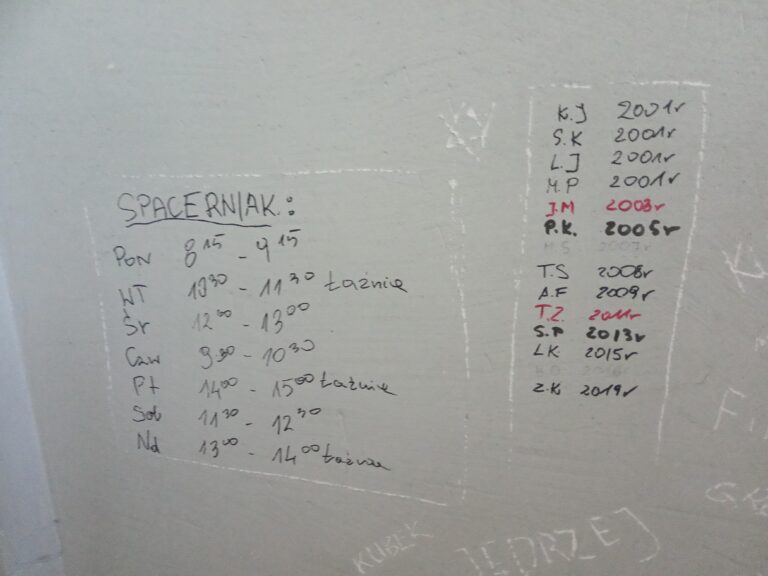 SPACERNIAK:
Pon 8 15 - 9 15
WT 10 30 - 11 30 Łaźnia
Śr 12 00 - 13 00
Czw 9 30 - 10 30
Pt 14 00 - 15 00 Łaźnia
Sob 11 30 - 12 30
Nd 13 00 - 14 00 Łaźnia
K.J 2001r
S.K 2001r
L.J 2001r
M.P 2001r
J.M 2003r
P.K. 2005r
M.S 2007r
T.S 2008r
A.F 2009r
T.Z. 2011r
S.P 2013r
LK 2015r
Z.K 2019r
KUBEK
JĘDRZEJ